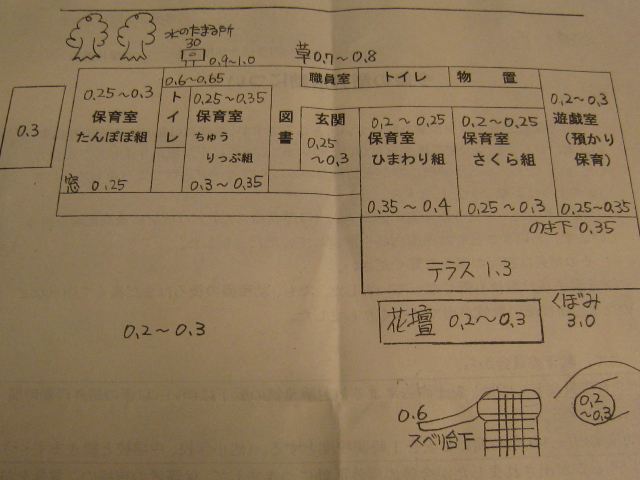 水のたまる所
30
0.9～1.0
草0.7～0.8
0.6～0.65
職員室
トイレ
物置
0.3
0.25～0.3
保育室
たんぽぽ組
窓 0.25
トイレ
0.25～0.35
保育室
ちゅう
りっぷ組
0.3～0.35
図書
玄関
0.25
～0.3
0.2～0.25
保育室
ひまわり組
0.35～0.4
0.2～0.25
保育室
さくら組
0.25～0.3
0.2～0.3
遊戯室
(預かり
保育)
0.25～0.35
0.35
テラス 1.3
花壇 0.2～0.3
くぼみ
3.0
0.2～0.3
0.6
スベリ台下
0.2
～0.3